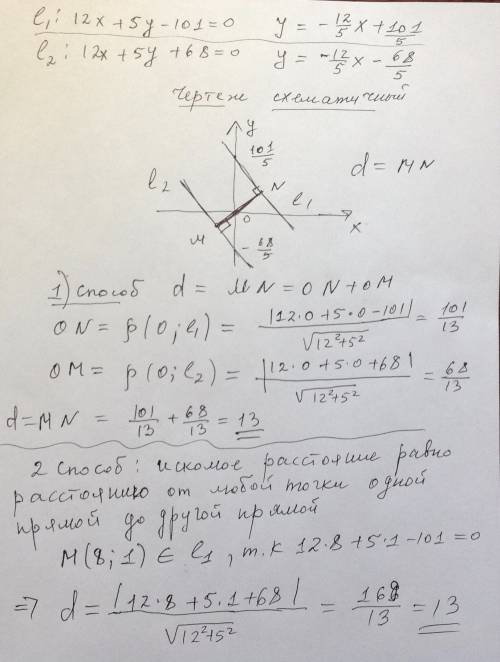 l₁: 12x+5y-101=0 y = -12/5 x + 101/5
l₂: 12x+5y+68=0 y = -12/5 x - 68/5
Чертеж схематичный
y
101/5
d = MN
l₂
N
l₁
0
x
M
-68/5
1) способ d = MN = ON + OM
ON = ρ(0; l₁) = |12·0+5·0-101| / √(12²+5²) = 101/13
OM = ρ(0; l₂) = |12·0+5·0+68| / √(12²+5²) = 68/13
d = MN = 101/13 + 68/13 = 13
2 способ: искомое расстояние равно
расстоянию от любой точки одной
прямой до другой прямой
M(8; 1) ∈ l₁, т.к 12·8+5·1-101=0
⇒ d = |12·8+5·1+68| / √(12²+5²) = 169/13 = 13